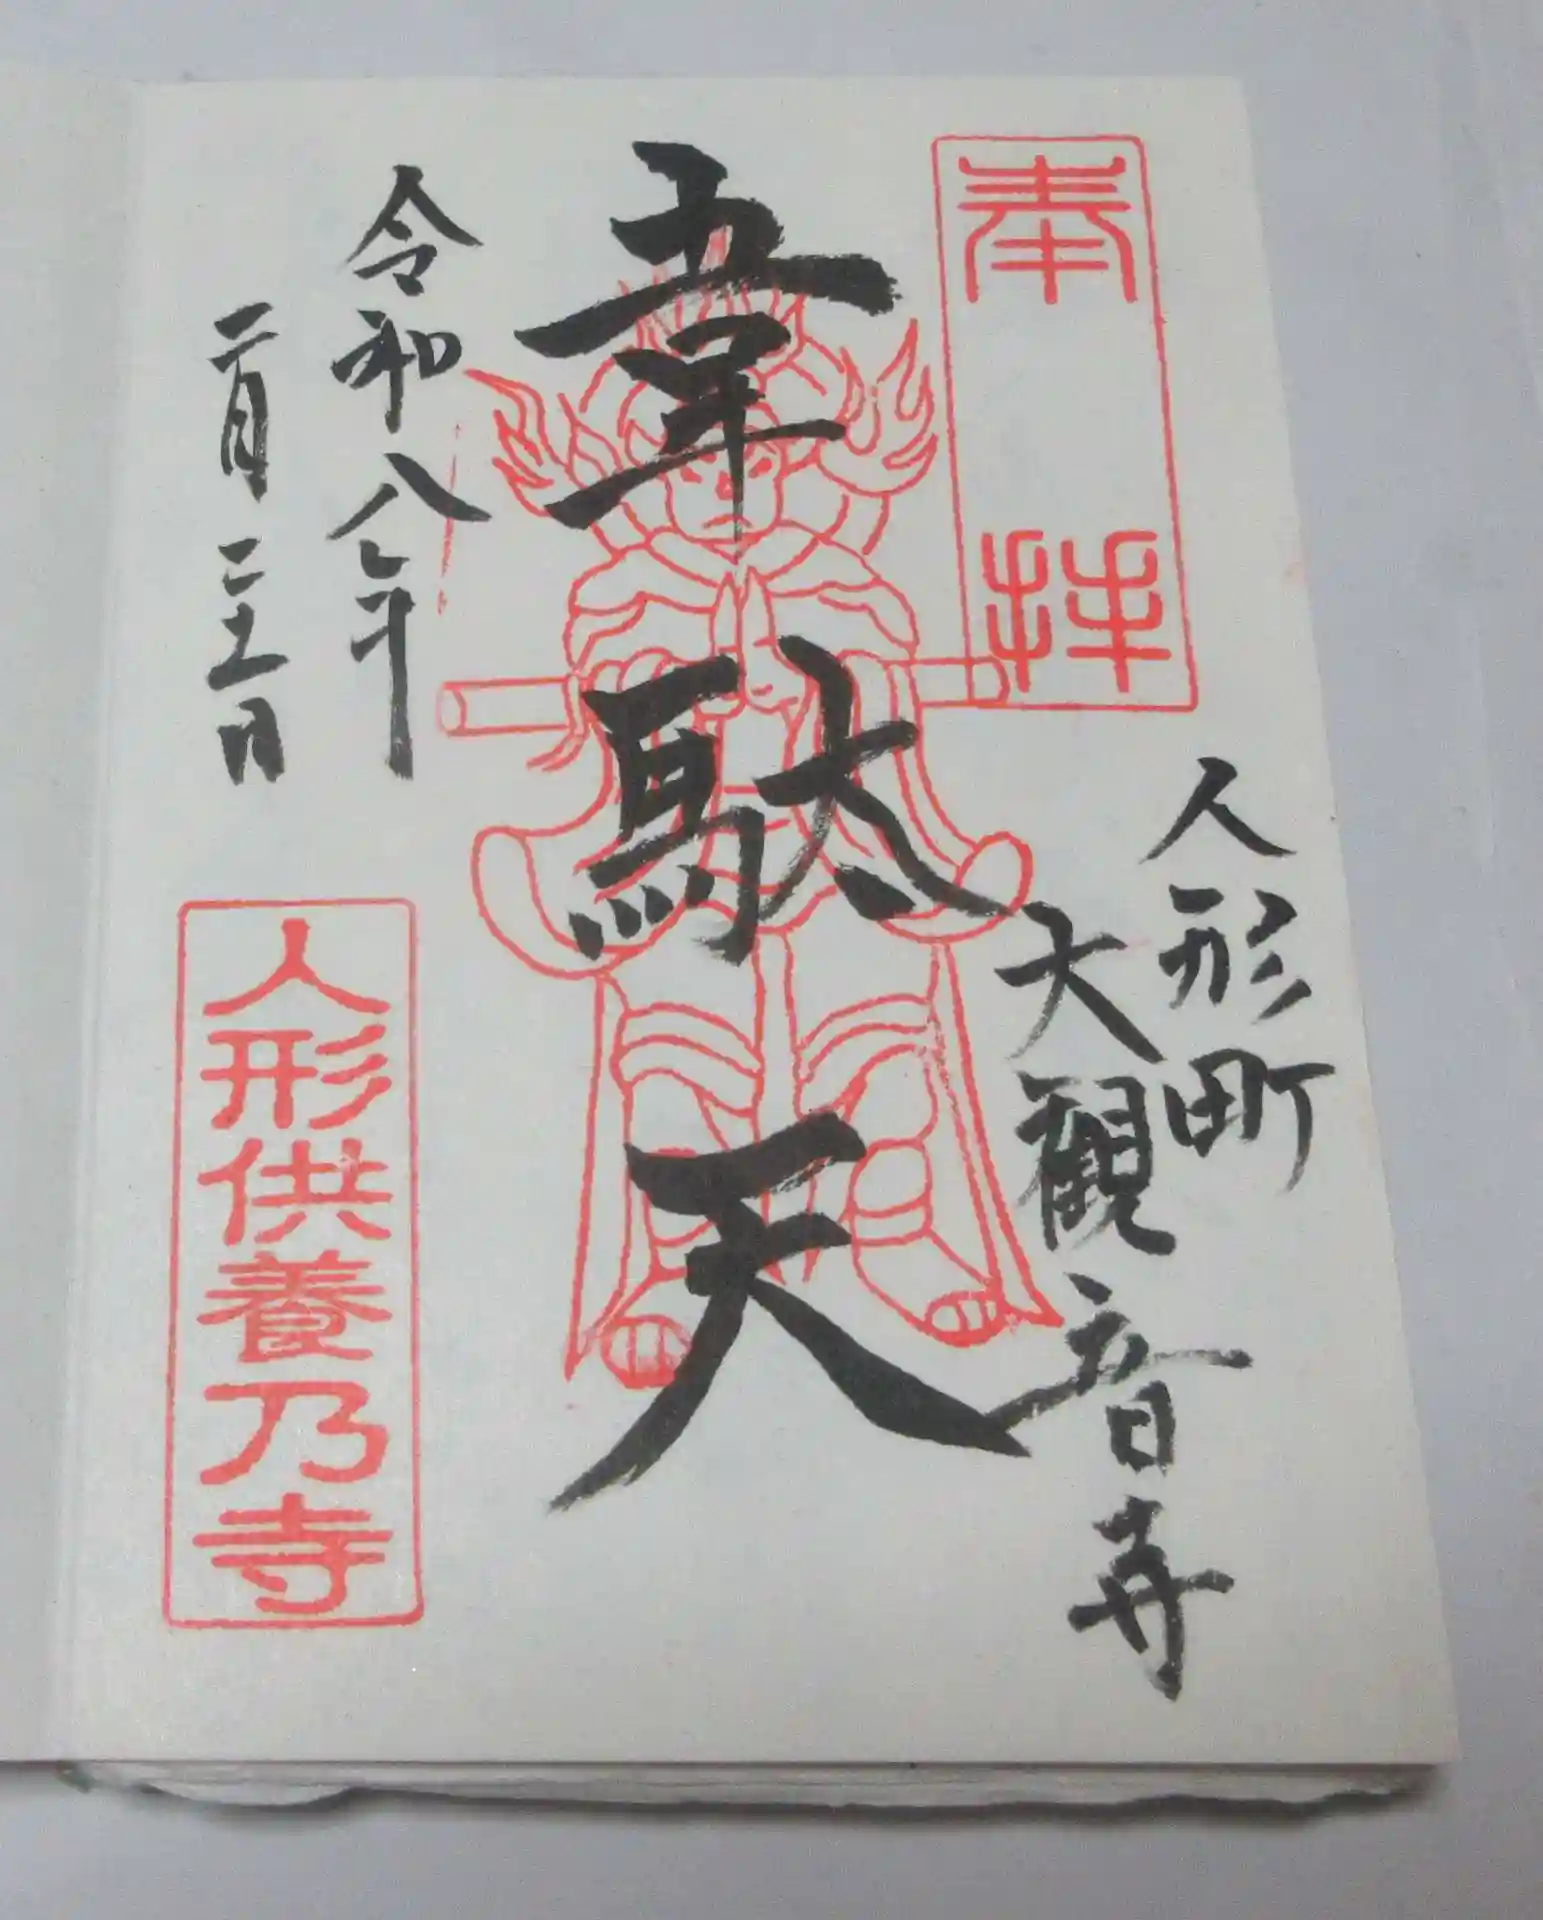 奉拝
人形町
大観音寺
韋駄天
令和八年
二月二十一日
人形供養乃寺